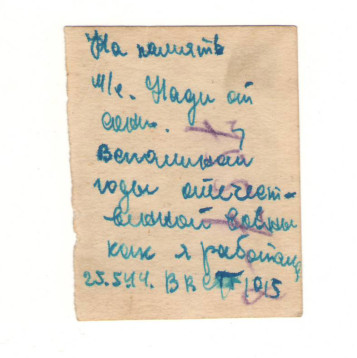 На память
т/е. Нади от
Вспоминай
годы отечест-
венной войны
как я работал
25.5.44. В ВСГ 1915